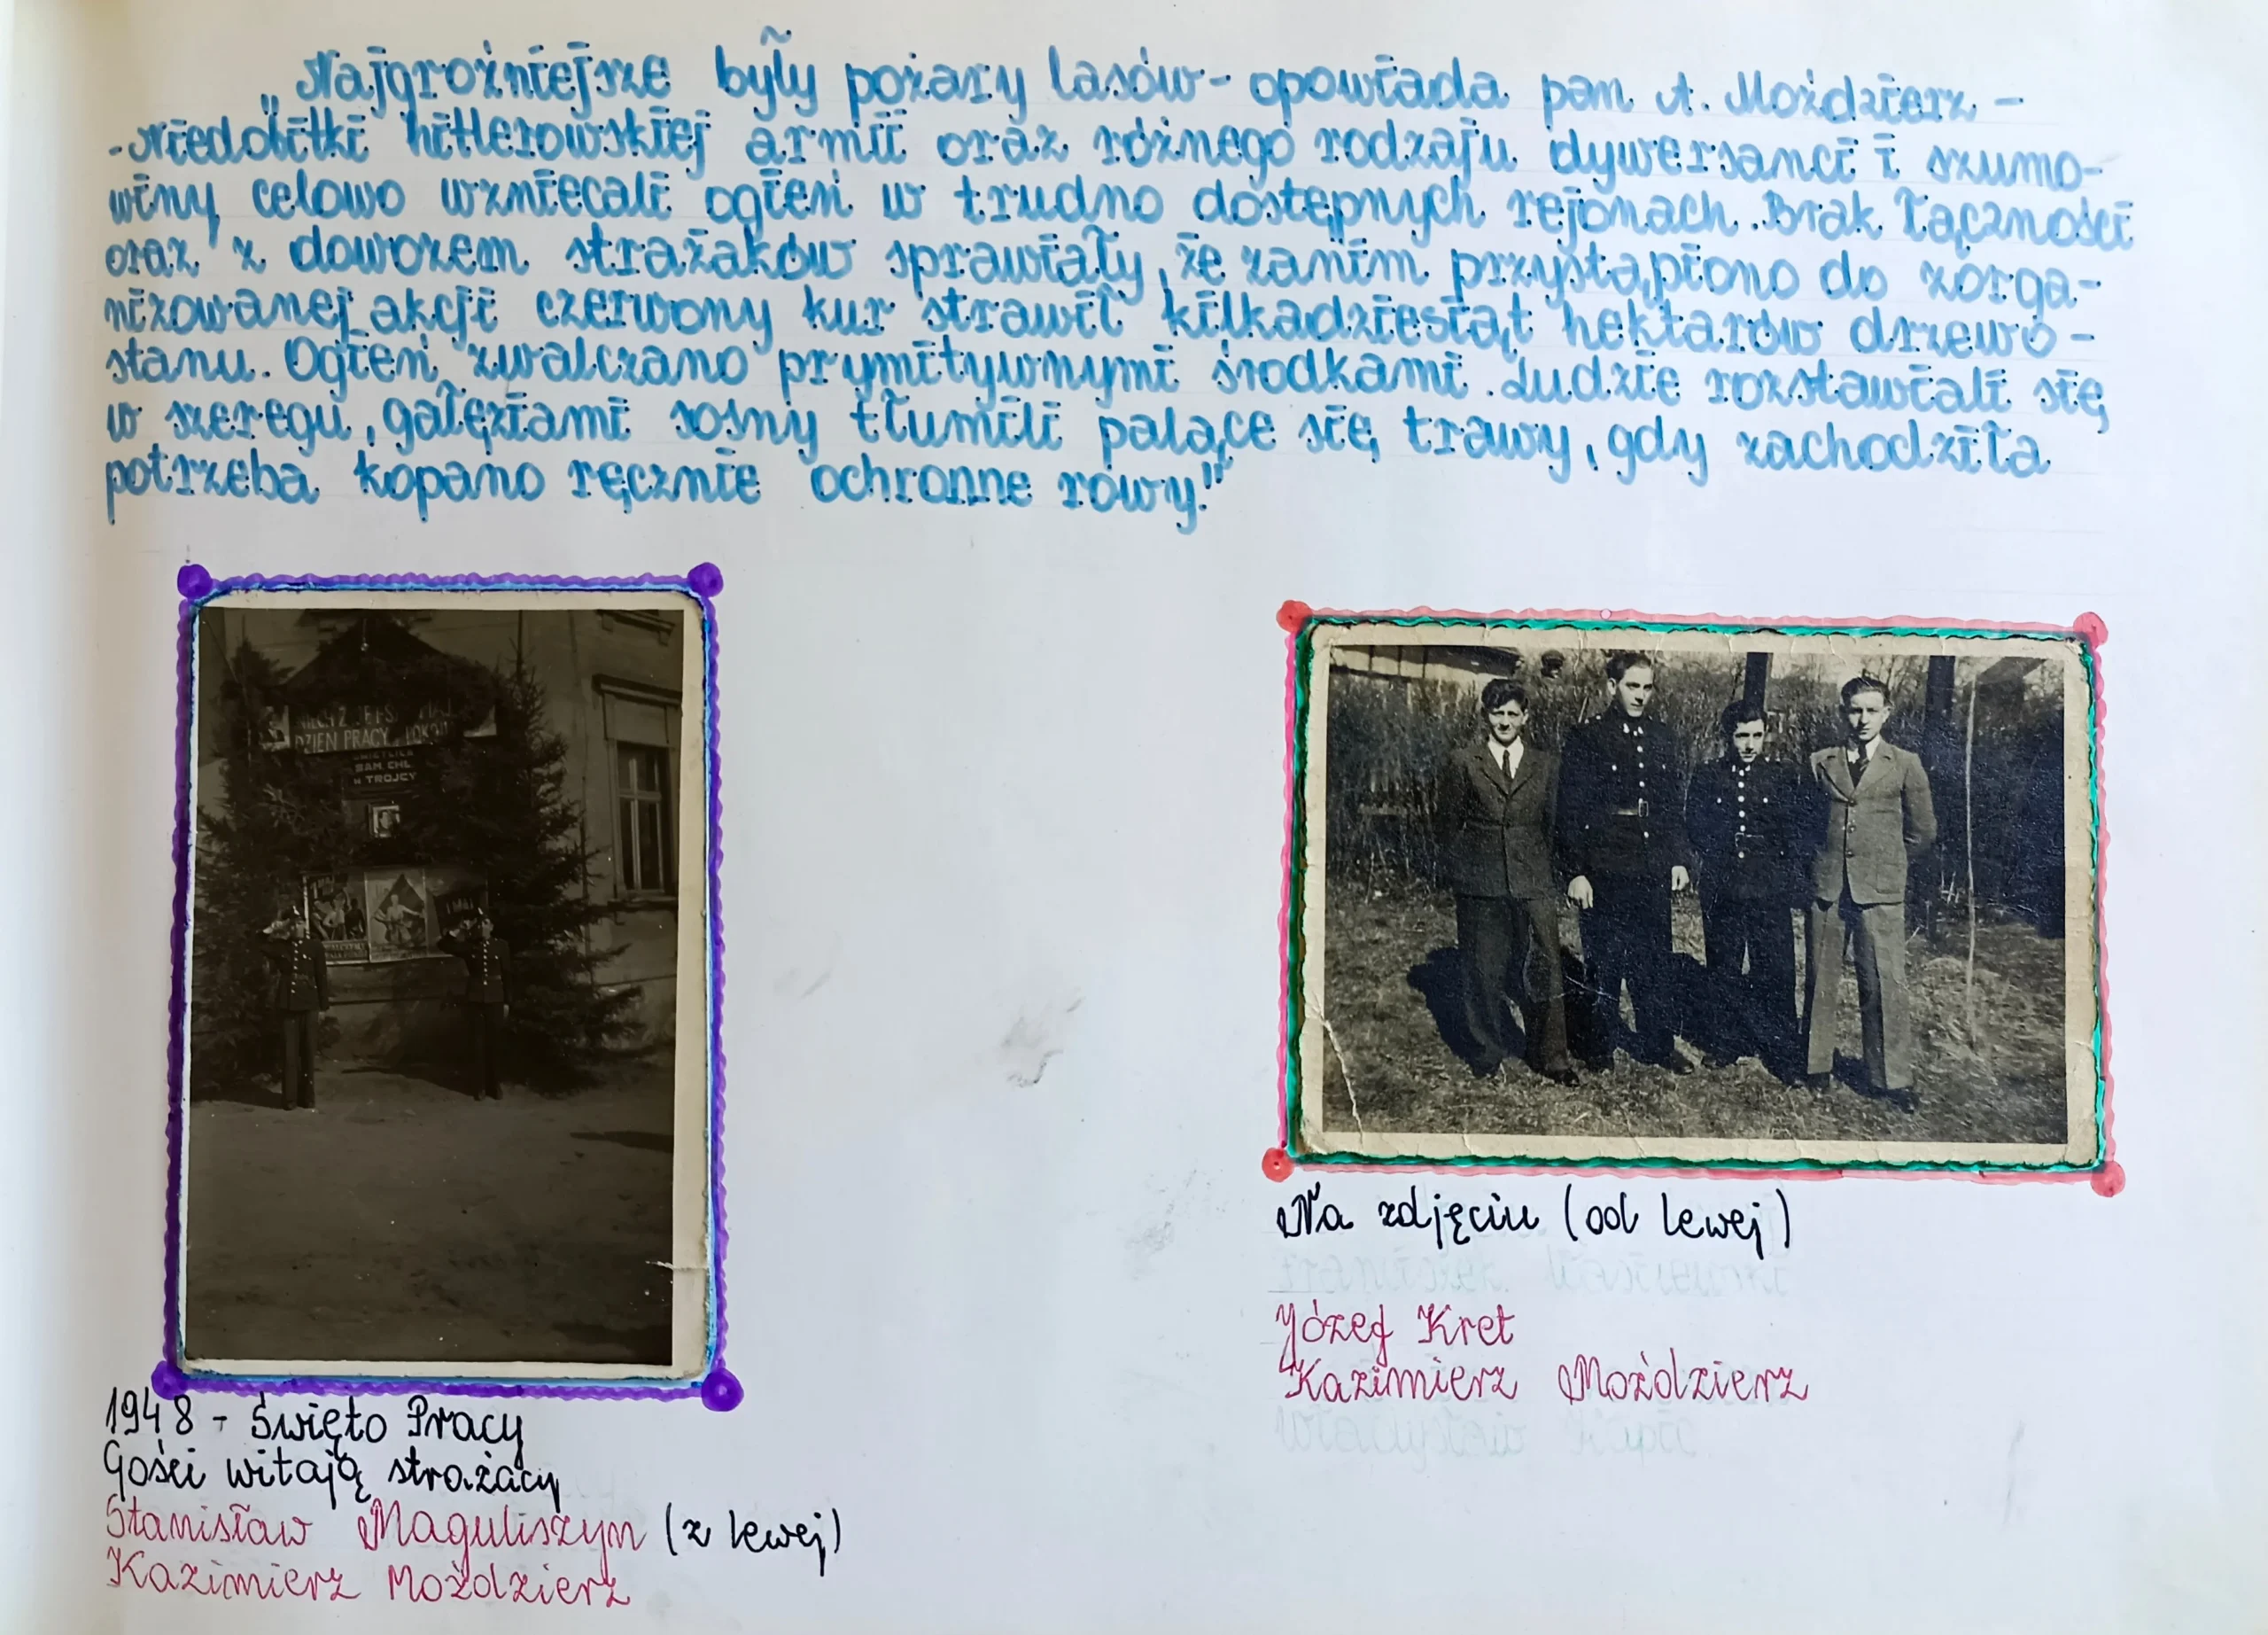 „Najgroźniejsze były pożary lasów - opowiada pan A. Moździerz -
- Niedobitki hitlerowskiej armii oraz różnego rodzaju dywersanci i szumo-
winy celowo wzniecali ogień w trudno dostępnych rejonach. Brak łączności
oraz z dowozem strażaków sprawiały, że zanim przystąpiono do zorga-
nizowanej akcji czerwony kur strawił kilkadziesiąt hektarów drzewo-
stanu. Ogień zwalczano prymitywnymi środkami. Ludzie rozstawiali się
w szeregu, gałęziami sosny tłumili palące się trawy, gdy zachodziła
potrzeba kopano ręcznie ochronne rowy."
NIECH
DZIEŃ PRACY
ŚWIETLICA
SAM. CHŁ
w TROJCY
1948 - Święto Pracy
Gości witają strażacy
Stanisław Maguliszyn (z lewej)
Kazimierz Moździerz
Na zdjęciu (od lewej)
Józef Kret
Kazimierz Moździerz